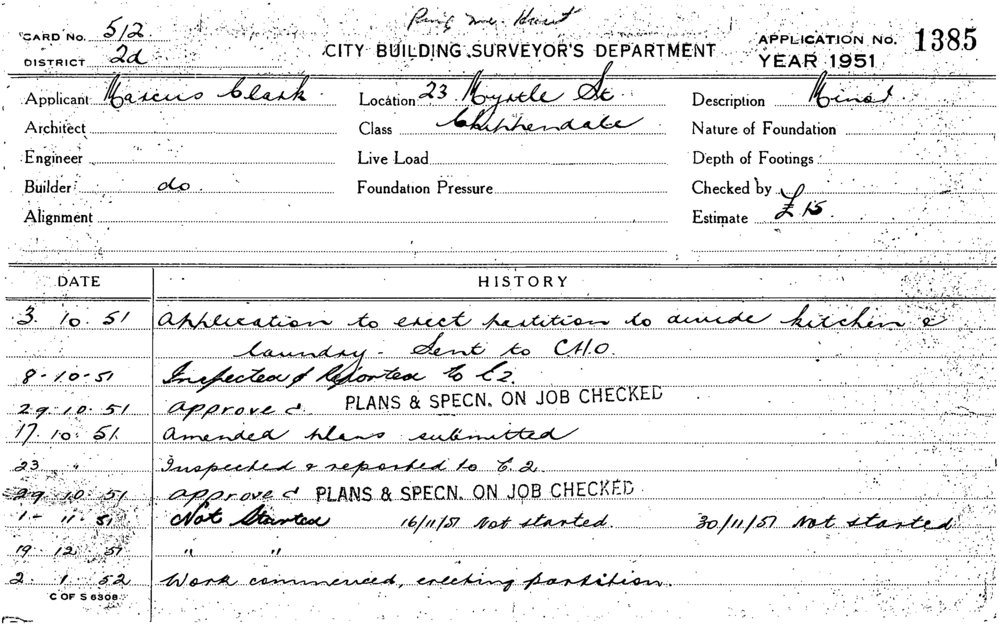 Ring Mr. Hunt
CARD No. 512
DISTRICT 2d
CITY BUILDING SURVEYOR'S DEPARTMENT
APPLICATION No. 1385
YEAR 1951
Applicant Marcus Clark Location 23 Myrtle St Description Minor
Architect Class Chippendale Nature of Foundation
Engineer Live Load Depth of Footings
Builder do. Foundation Pressure Checked by
Alignment Estimate £15
DATE HISTORY
3. 10. 51 Application to erect partition to divide kitchen &
laundry - Sent to C.H.O.
8-10-51 Inspected & Reported to C2.
29. 10. 51 approved. PLANS & SPECN. ON JOB CHECKED
17. 10. 51. Amended plans submitted
23 " Inspected & reported to C.2.
29 10. 51 approved PLANS & SPECN. ON JOB CHECKED
1- 11. 51 Not Started 16/11/51 Not started. 30/11/51 Not started
19. 12. 51 " "
2. 1. 52 Work commenced, erecting partition.
C OF S 6308